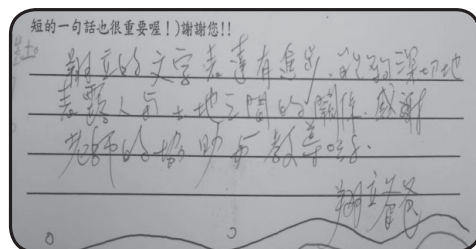 短的一句話也很重要喔！)謝謝您!!
翔立的文字表達有進步、能夠深切地
表露人與土地之間的關係.感謝
老師的協助與教導
翔立爸爸